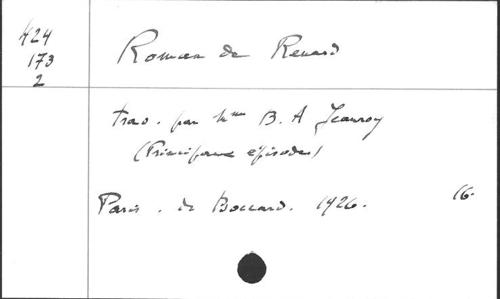 424
173
2
Roman de Renard
trad. par Mme B. A Jeanroy
(Principaux épisodes)
Paris. de Boccard. 1926. 16.